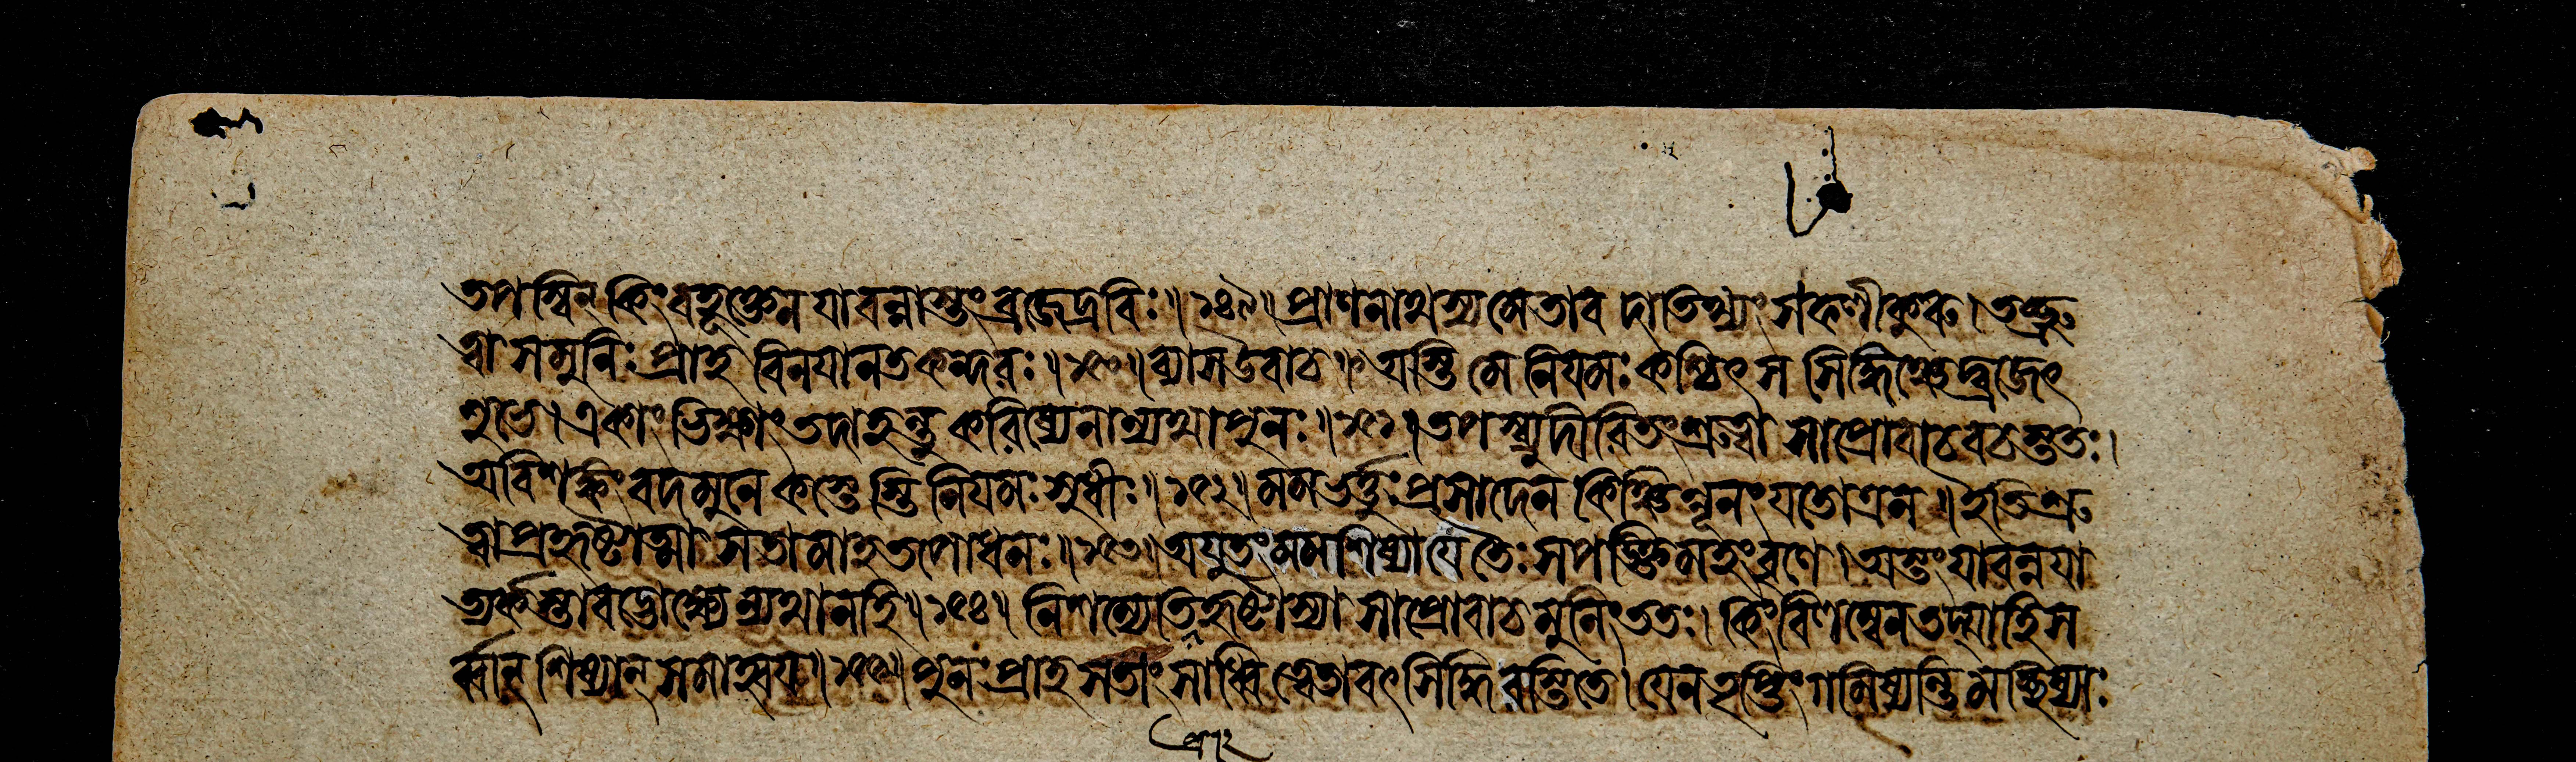 তপস্বিন্ কিং বহূক্তেন যাবন্নাস্তং ব্রজেদ্রবিঃ ॥ ১৪৯ ॥ প্রাণনাথস্য মে তাবদাতিথ্যং সফলীকুরু । তচ্ছ্রু
ত্বা স মুনিঃ প্রাহ বিনযানতকন্ধরঃ ॥ ১৫০ ॥ ব্যাস উবাচ ॥ অস্তি মে নিযমঃ কশ্চিৎ স সিদ্ধিঞ্চেদ্ব্রজেৎ
শুভে । একাং ভিক্ষাং তদাহন্তু করিষ্যে নান্যথা পুনঃ ॥ ১৫১ ॥ তপস্ব্যুদীরিতং শ্রুত্বা সা প্রোবাচ বচস্ততঃ ।
অবিশঙ্কিং বদ মুনে কস্তেস্তি নিযমঃ সুধীঃ ॥ ১৫২ ॥ মম ভর্ত্তুঃ প্রসাদেন কিঞ্চিন্নূনং যতোত্র ন ॥ ইতি শ্রু
ত্বা প্রহৃষ্টাত্মা স তামাহ তপোধনঃ ॥ ১৫৩ ॥ অযুতং মম শিষ্যা যে তৈঃ সপঙ্ক্তিমহং বৃণে । অস্তং যাবন্ন যা
ত্যর্কস্তাবদ্ভোক্ষ্যেন্যথা নহি ॥ ১৫৪ ॥ নিশম্যেতি হৃষ্টাস্যা সা প্রোবাচ মুনিং ততঃ । কিং বিলম্বেন তদ্যাহি স
র্ব্বান্ শিষ্যান্ সমাহ্বয ॥ ১৫৫ ॥ পুনঃ প্রাহ স তাং সাধ্বি ত্বেতাবৎ সিদ্ধিরস্তি তে । যেন তৃপ্তিং গমিষ্যন্তি মচ্ছিষ্যাঃ